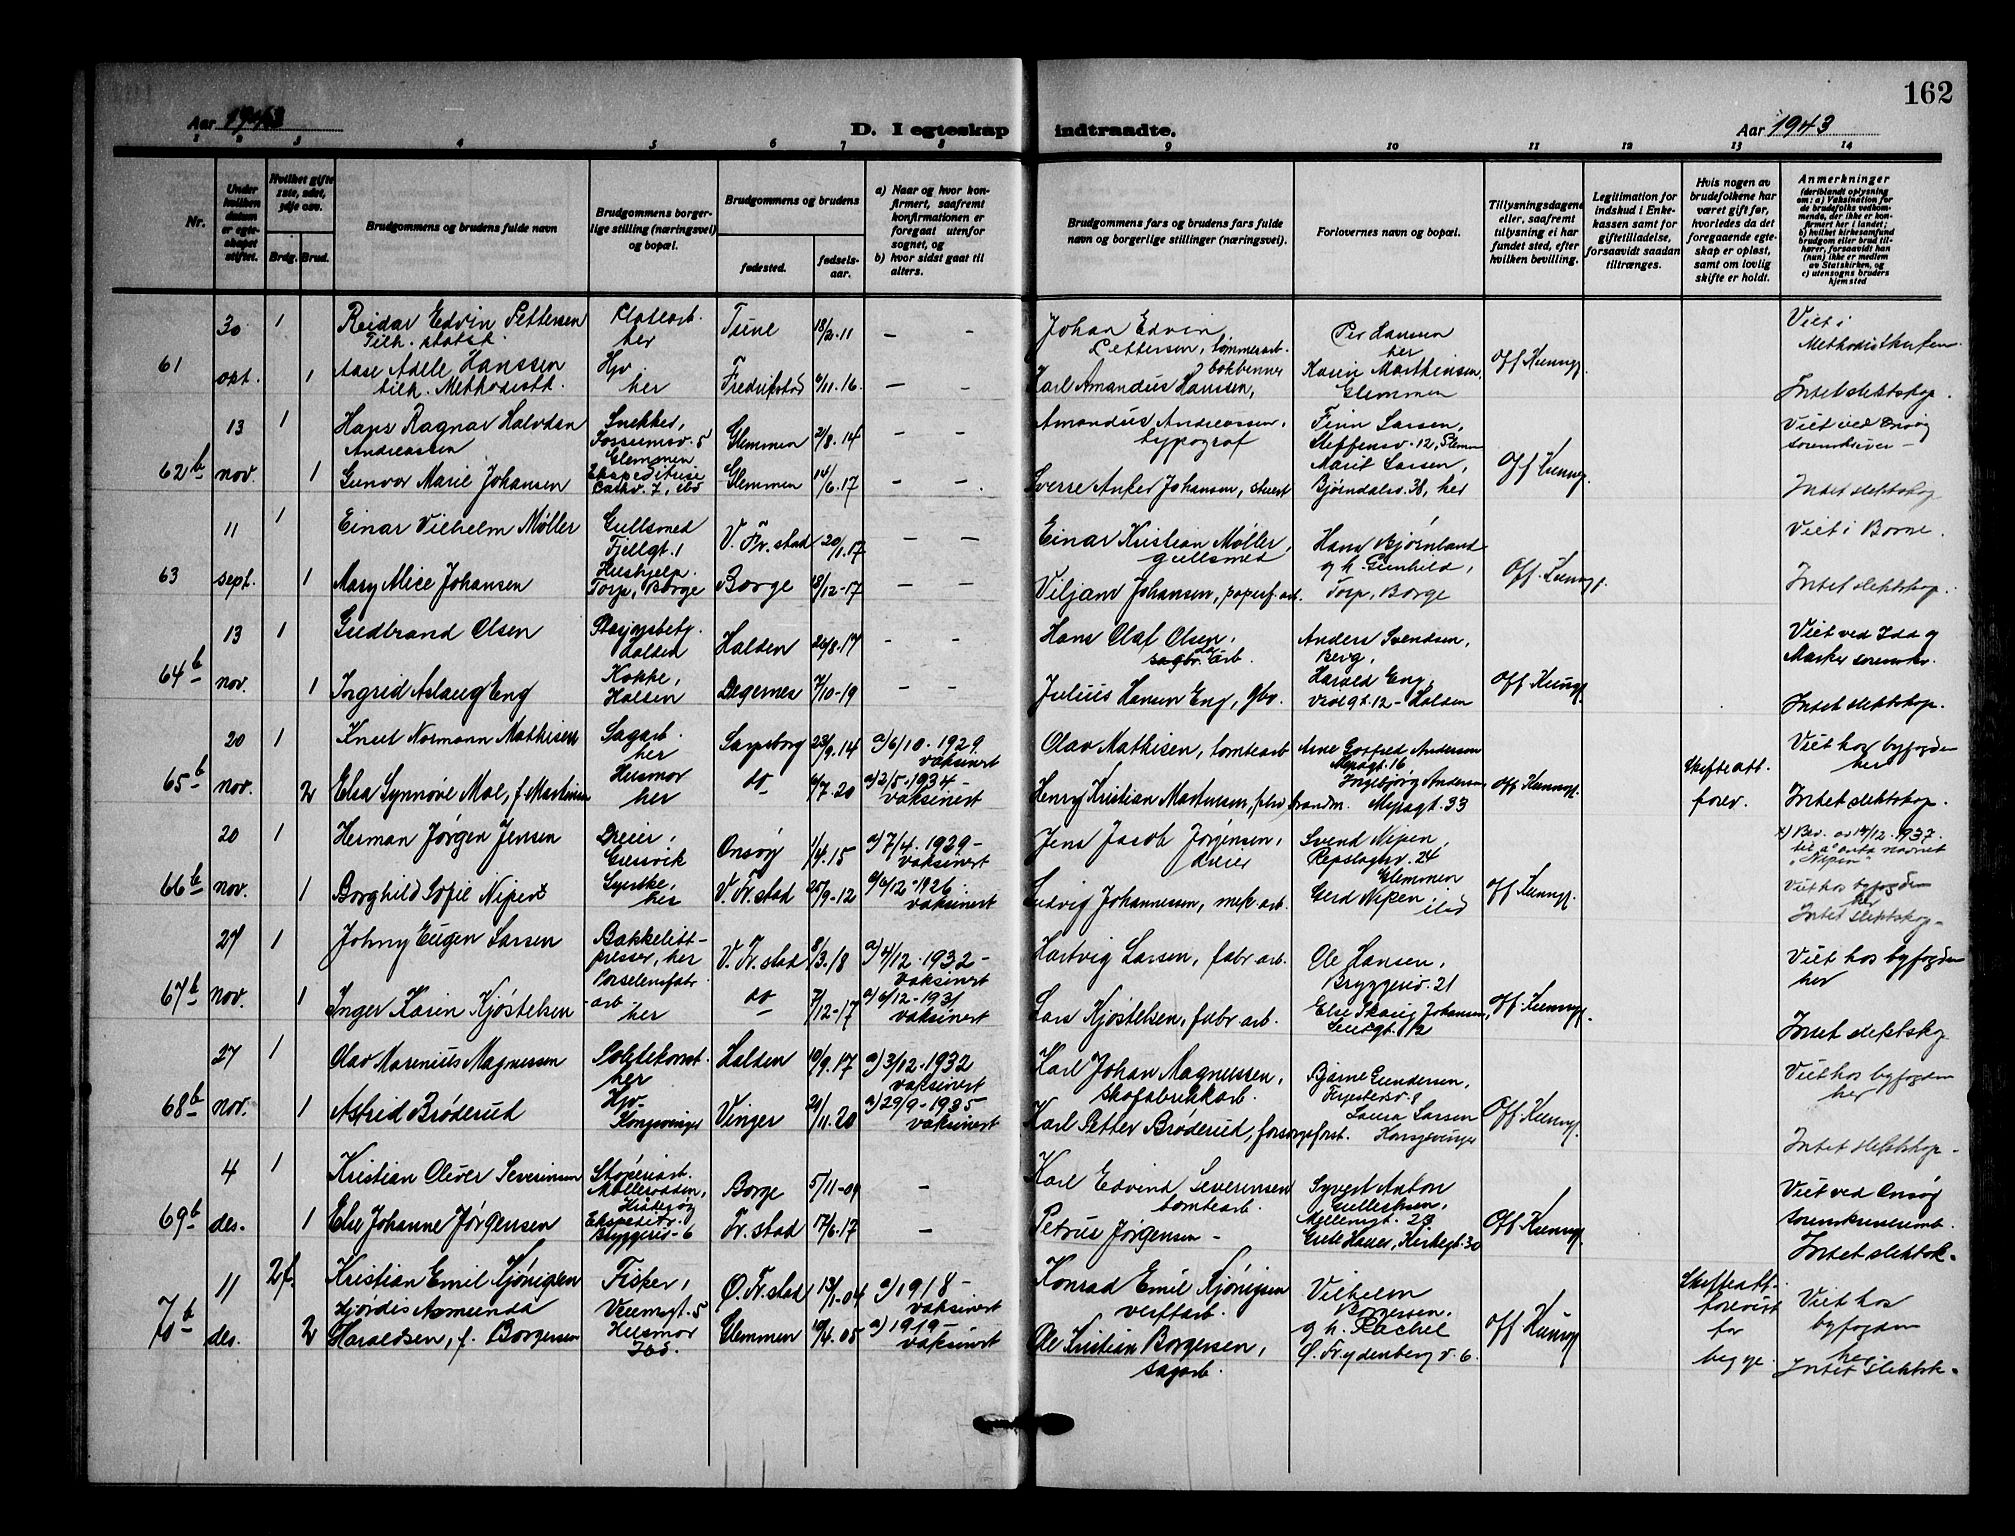 162
Aar 1943
D. I egteskap indtraadte.
Aar 1943
1 2 3 4 5 6 7 8 9 10 11 12 13 14
Nr.
Under hvilken datum er egteskapet stiftet.
Hvilket gifte 1ste, 2det, 3dje osv.
Brdg. Brud.
Brudgommens og brudens fulde navn
Brudgommens borgerlige stilling (næringsvei) og bopæl.
Brudgommens og brudens
fødested.
fødselsaar.
a) Naar og hvor konfirmert, saafremt konfirmationen er foregaat utenfor sognet, og
b) hvor sidst gaat til alters.
Brudgommens fars og brudens fars fulde navn og borgerlige stillinger (næringsvei).
Forlovernes navn og bopæl.
Tillysningsdagene eller, saafremt tillysning ei har fundet sted, efter hvilken bevilling.
Legitimation for indskud i Enkekassen samt for giftetilladelse, forsaavidt saadan tiltrænges.
Hvis nogen av brudefolkene har været gift før, hvorledes da det foregaaende egteskap er opløst, samt om lovlig skifte er holdt.
Anmerkninger
(deriblandt oplysning om: a) Vaksination for de brudefolks vedkommende, der ikke er konfirmert her i landet; b) hvilket kirkesamfund brudgom eller brud tilhører, forsaavidt han (hun) ikke er medlem av Statskirken, og c) utensogns bruders hjemsted
61
30 1 Reidar Edvin Pettersen
Tilh. statsk.
Platearb.
her
Tune 18/2-11 - -
Johan Edvin
Pettersen, tømmerarb.
Per Hansen
her
Viet i
Methodistkirken
opt. 1 Aase Adele Hanssen
tilh. Methodistk.
Hjv.
her
Fredrikstad 6/11.16. - -
bokbinner
Karl Amandus Hanssen,
Karin Marthinsen,
Glemmen
Off. Kunngj.
Intet slektskap.
62b
13 1 Hans Ragnar Halvdan
Andreassen
Snekker,
Fossumsv. 5
Glemmen
Glemmen 2/8.14 - -
Amandus Andreassen,
typograf
Finn Larsen,
Steffensv. 12, Glemm
Viet ved Onsøy
sorenskriver -
nov. 1 Gunvor Marie Johansen
Ekspeditrise
Parkv. 7, ibd
Glemmen 14/6.17 - -
Sverre Anker Johansen, stuert
Marit Larsen,
Bjørndalsv. 38, her
Off. Kunngj.
Intet slektskap
63
11 1 Einar Vilhelm Møller
Gullsmed
Fjellgt. 1
V. Fr.stad 20/1.17 - -
Einar Kristian Møller,
gullsmed
Hans Bjørnland
og h. Gunhild,
Viet i Borge.
sept. 1 Mary Alice Johansen
Hushjelp.
Torp, Borge
Borge 18/12-17 - -
Viljam Johansen, papirf.arb.
Torp, Borge
Off. Kunngj.
Intet slektskap.
64b
13 1 Gudbrand Olsen
Halden
Halden 26/8.17 - -
Hans Olaf Olsen,
sagbr. arb.
Anders Svendsen,
Berg,
Viet ved Idd og
Marker sorenskr.
nov. 1 Ingrid Aslaug Eng
Kokke,
Halden
Degernes 7/10-19 - -
Julius Hansen Eng, gbr.
Harald Eng,
Violgt. 12 - Halden
Off. Kunngj.
Intet slektskap.
65b
20 1 Knut Normann Mathisen
Sagarb.
her
Sarpsborg 23/9.14 a) 6/10.1929
vaksinert
Olav Mathisen, tomtearb
Arne Gotfred Andersen
Mejagt. 16
Viet hos byfogden
her
nov. 2 Elsa Synnøve Moe, f. Martinsen
Husmor
her
do 6/7.20 a) 2/5.1934 -
vaksinert
Henry Kristian Martinsen,
Ingebjørg Andersen
Mejagt. 33
Off. Kunngj.
Skifteatt.
forev.
Intet slektskap.
66b
20 1 Herman Jørgen Jensen
Dreier,
Gressvik
Onsøy 1/4.15 a) 7/4.1929 -
vaksinert
Jens Jacob Jørgensen,
dreier
Svend Nipen,
Repslagerv. 24
Glemmen
x) Bev. av 14/12.1937
til å anta navnet
"Nipen"
nov. 1 Borghild Sofie Nipen x
Syerske,
her
V. Fr.stad 25/9-12 a) 6/12-1926.
vaksinert
Ludvig Johannessen, mek. arb.
Gerd Nipen,
ibd
Off. Kunngj.
Viet hos byfogden
her
Intet slektskap -
67b
27 1 Johny Eugen Larsen
Bakkelitt-
presser, her
V. Fr.stad 8/3.18 a) 4/12.1932 -
vaksinert
Hartvig Larsen, fabr arb.
Ole Hansen,
Bryggeriv. 21
Viet hos byfogden
her
nov. 1 Inger Karin Kjøstelsen
Porselensfabr
- arb.
her
do 7/12-17 a) 6/12-1931
vaksinert
Lars Kjøstelsen, fabr arb.
Else Skaug Johansen,
Lundgt. 12
Off. Kunngj.
Intet slektskap
68b
27 1 Olav Marenius Magnussen
Politikonst.
her
Halden 10/9.17 a) 3/12.1932
vaksinert
Karl Johan Magnussen,
skofabrikkarb.
Bjarne Gundersen,
Viet hos byfogden
her
nov. 1 Astrid Brøderud
Hjv.
Kongsvinger
Vinger 21/11.20 a) 29/9-1935-
vaksinert
Karl Petter Brøderud, forsorgsforst.
Laura Larsen
Kongsvinger
Off. Kunngj.
Intet slektskap -
69b
4 1 Kristian Oliver Severinsen
Støperiarb.
Møllerodden,
Kirkerøy
Borge 5/11-09 -
Karl Edvind Severinsen
tomtearb.
Syvert Anton
Gulliksen,
Mellemgt. 29
Viet ved Onsøy
sorenskriveremb.
des. 1 Else Johanne Jørgensen
Ekspeditr.
Bryggeriv. 6
Fr. stad 17/6.17 -
Petrus Jørgensen -
Grete Hauer, Kirkegt. 30
Off. Kunngj.
Intet slektsk.
70b
11 2 f. Kristian Emil Kjønigsen
Fisker,
Veumsgt. 5
Ø. Fr.stad 13/1-04 a) 1918 -
vaksinert
Konrad Emil Kjønigsen
verftarb.
Vilhelm
Borgersen,
Skifteatt.
forevist
for
begge.
Viet hos
byfogden
her.
des. 2 Hjørdis Asmunda
Haraldsen, f. Borgersen
Husmor
ibd.
Glemmen 19/4.05 a) 1919 -
vaksinert
Ole Kristian Borgersen,
sagarb.
og h. Rachel
Ø. Frydenberg v. 6.
Off. Kunngj.
Intet slektsk.